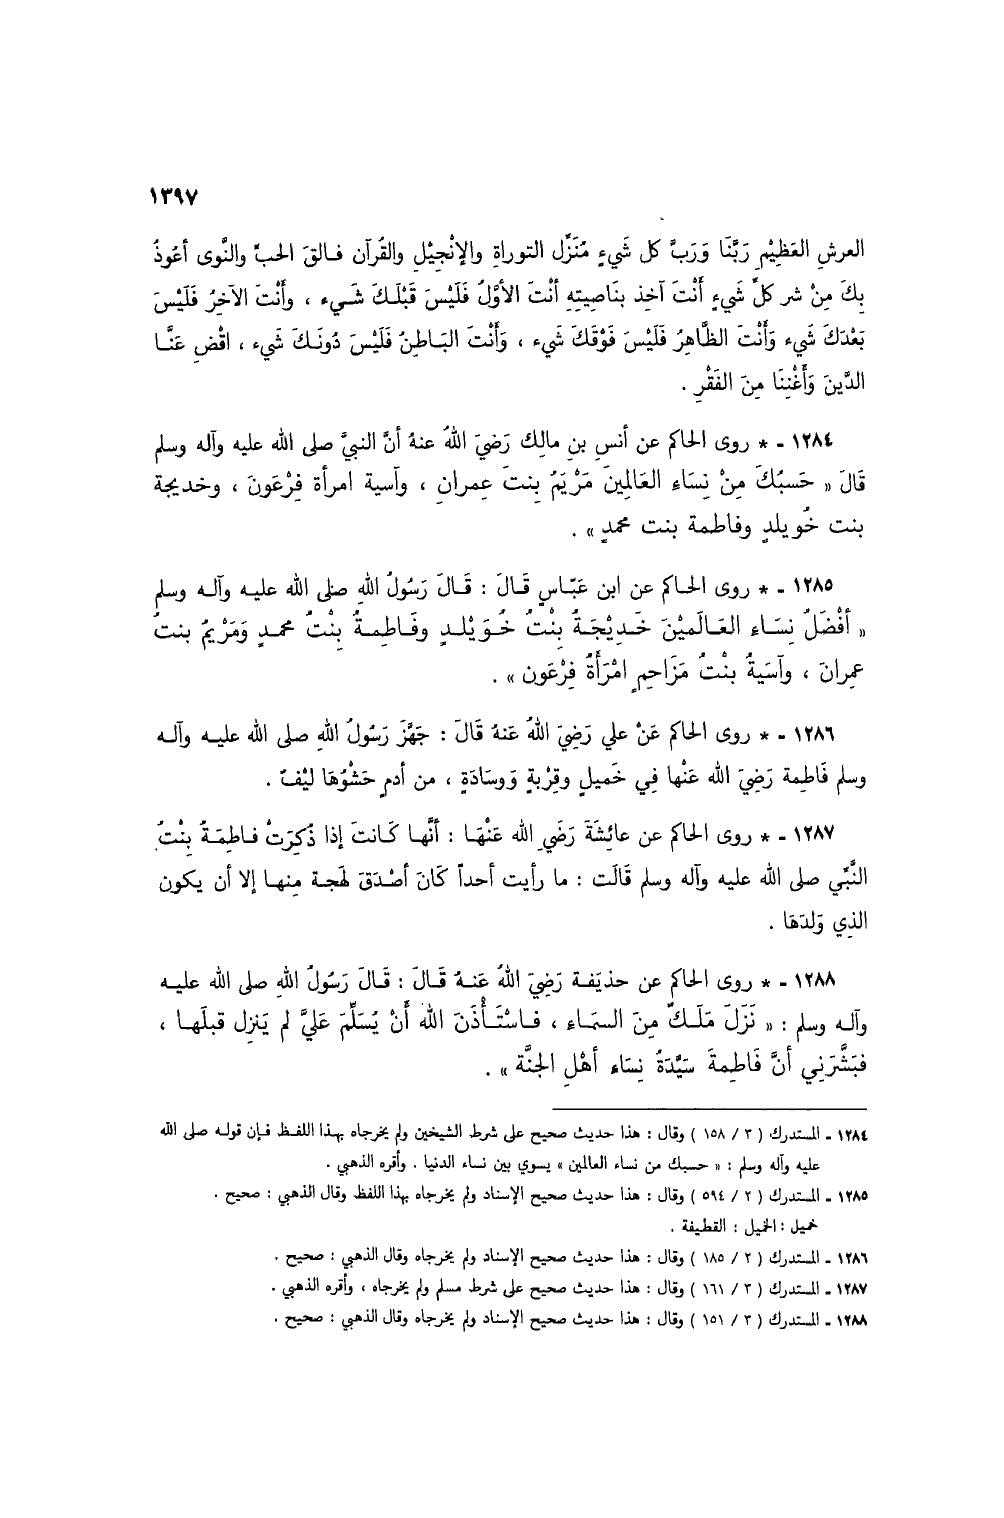 ١٣٩٧
العرشِ العَظِيْمِ رَبَّنَا وَرَبَّ كل شَيءٍ مُنَزِّل التوراةِ والإِنْجِيْلِ والقُرآن فـالقَ الحبِّ والنَّوى أعُوذُ
بِكَ مِنْ شر كلِّ شَيءٍ أَنْتَ آخِذ بنَاصِيتِهِ أنْتَ الأوَّلُ فَلَيْسَ قَبْلَـكَ شَـيء ، وأَنْتَ الآخِرُ فَلَيْسَ
بَعْدَكَ شَيء وَأَنْتَ الظَّاهِرُ فَلَيْسَ فَوْقَكَ شَيء ، وَأَنْتَ البَـاطِنُ فَلَيْسَ دُونَـكَ شَيء ، اقْضِ عَنَّـا
الدَّينَ وَأَغْنِنَا مِنَ الفَقْرِ .
١٢٨٤ - * روى الحاكم عن أنسِ بنِ مالِك رَضيَ اللهُ عنهُ أنَّ النبيَّ صلى الله عليه وآله وسلم
قَالَ « حَسبُكَ مِنْ نِسَاءِ العَالمِينَ مَرْيَمُ بِنتَ عِمرانِ ، وآسية امرأة فِرْعَونَ ، وخديجة
بنت خُويلدٍ وفاطمة بنت محمدٍ » .
١٢٨٥ - * روى الحـاكم عن ابن عَبّـاسٍ قَـالَ : قَـالَ رَسُولُ اللهِ صلى الله عليـه وآلـه وسلم
« أفْضَلُ نِسَـاءِ العَـالَميْنَ خَـدِيْجَـةُ بِنْتُ خُـوَيْلـدٍ وفَـاطِمـةُ بِنْتُ محمـدٍ وَمَرْيمُ بنتُ
عِمرانَ ، وآسَيةُ بنْتُ مَزَاحِمٍ امْرَأةُ فِرْعَون » .
١٢٨٦ - * روى الحاكم عَنْ علي رَضِيَ اللهُ عَنهُ قَالَ : جَهَّزَ رَسُولُ اللهِ صلى الله عليـه وآلـه
وسلم فَاطِمة رَضِيَ الله عَنْها فِي خَميلٍ وقِرْبةٍ وَوسَادَةٍ ، من أدمٍ حَشْوُهَا لِيْفٌ .
١٢٨٧ - * روى الحاكم عن عائِشَةَ رَضَي الله عَنْهَا : أنَّها كَـانتَ إذا ذُكِرَتْ فـاطِمَـةُ بِنْتُ
النَّبِّي صلى الله عليه وآله وسلم قَالَت : ما رأيت أحداً كَانَ أصْدَقَ لَهجـة مِنهـا إلا أن يكون
الذِي وَلدَهَا .
١٢٨٨ - * روى الحاكم عن حذيَفـة رَضِيَ اللهُ عَنـهُ قَـالَ : قَـالَ رَسُولُ اللهِ صلى الله عليـه
وآلـه وسلم : « نَزَلَ مَلَـكٌ مِنَ السمَـاءِ ، فَـاسْتَـأْذَنَ اللهَ أَنْ يُسَلِّمَ عَليَّ لم يَنزِل قبلَهـا ،
فبَشَّرَنِي أنَّ فَاطِمةَ سَيِّدَةُ نِسَاء أهْلِ الجنَّة » .
١٢٨٤ - المستدرك ( ٣ / ١٥٨ ) وقال : هذا حديث صحيح على شرط الشيخين ولم يخرجاه بهذا اللفـظ فـإن قولـه صلى الله
عليه وآله وسلم : « حسبك من نساء العالمين » يسوي بين نساء الدنيا . وأقره الذهبي .
١٢٨٥ - المستدرك ( ٢ / ٥٩٤ ) وقال : هذا حديث صحيح الإسناد ولم يخرجاه بهذا اللفظ وقال الذهبي : صحيح .
خميل : الخميل : القطيفة .
١٢٨٦ - المستدرك ( ٢ / ١٨٥ ) وقال : هذا حديث صحيح الإسناد ولم يخرجاه وقال الذهبي : صحيح .
١٢٨٧ - المستدرك ( ٣ / ١٦١ ) وقال : هذا حديث صحيح على شرط مسلم ولم يخرجاه ، وأقره الذهبي .
١٢٨٨ - المستدرك ( ٣ / ١٥١ ) وقال : هذا حديث صحيح الإسناد ولم يخرجاه وقال الذهبي : صحيح .